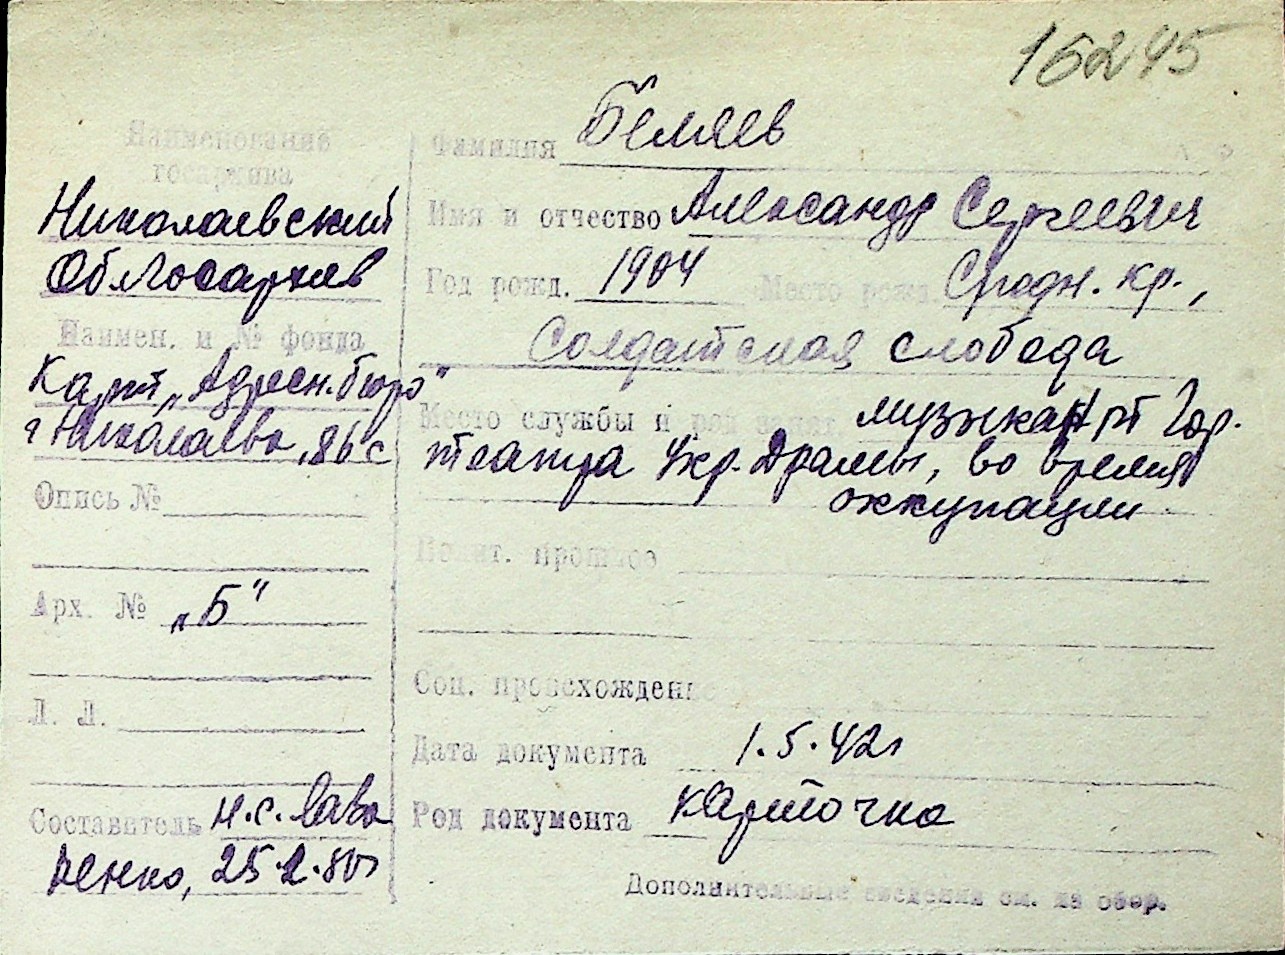 16245
Наименование
госархива
Николаевский
Облгосархив
Наимен. и № фонда
Карт. „Адресн. бюро"
г Николаева, 86 с
Опись №
Арх. № „Б"
Л. Л.
Составитель Н. С. Лава
ненко, 25.2.80г
Фамилия Беляев
Имя и отчество Александр Сергеевич
Год рожд. 1904 Место рожд. Сродн. кр.,
Солдатская слобода
Место службы и род занят. музыкант Гор.
театра Укр. Драмы, во время
оккупации
Полит. прошлое
Соц. происхождение
Дата документа 1.5.42г
Род документа карточка
Дополнительные сведения см. на обор.